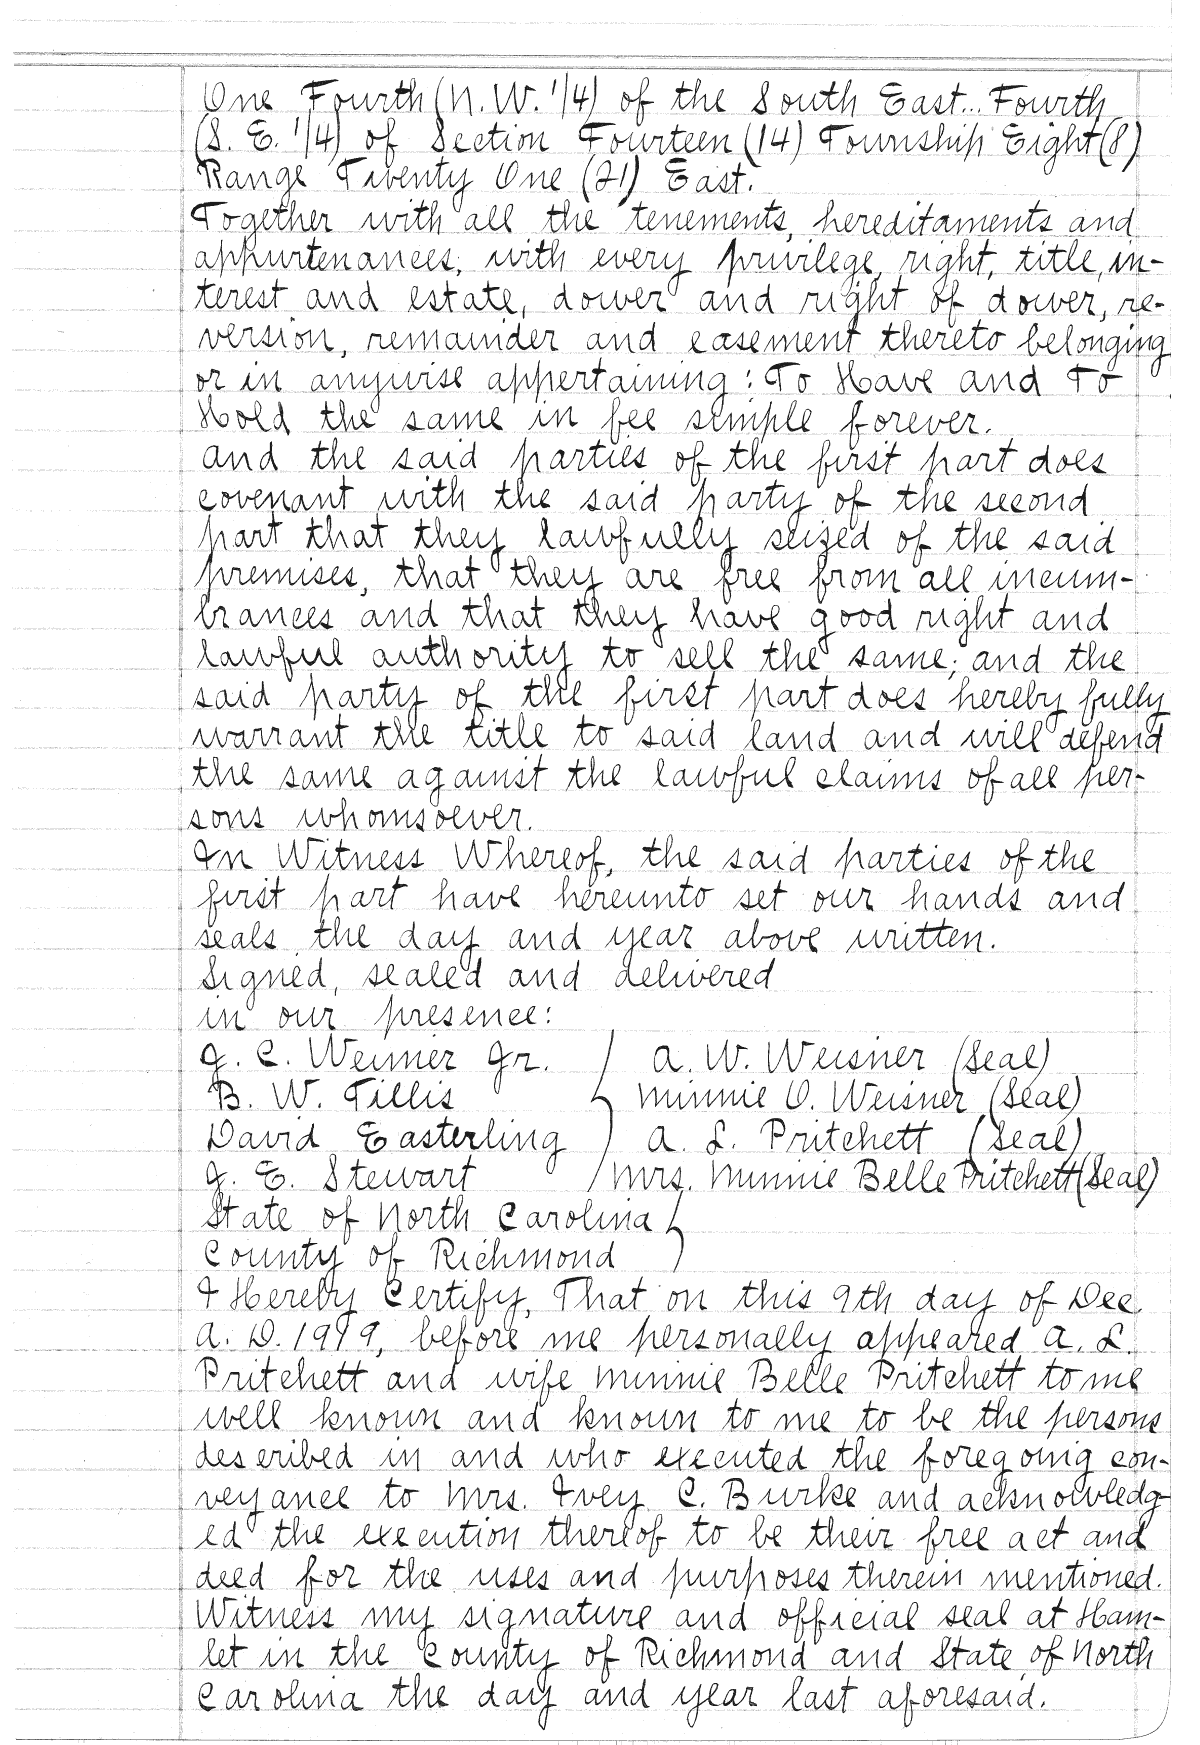 One Fourth (N.W. 1/4) of the South East... Fourth
(S. E. 1/4) of Section Fourteen (14) Township Eight (8)
Range Twenty One (21) East.
Together with all the tenements, hereditaments and
appurtenances, with every privilege, right, title, in-
terest and estate, dower and right of dower, re-
version, remainder and easement thereto belonging
or in anywise appertaining: To Have and To
Hold the same in fee simple forever.
And the said parties of the first part does
covenant with the said party of the second
part that they lawfully seized of the said
premises, that they are free from all incum-
brances and that they have good right and
lawful authority to sell the same; and the
said party of the first part does hereby fully
warrant the title to said land and will defend
the same against the lawful claims of all per-
sons whomsoever.
In Witness Whereof, the said parties of the
first part have hereunto set our hands and
seals the day and year above written.
Signed, sealed and delivered
in our presence:
J. C. Weimer Jr. } A. W. Weisner (Seal)
B. W. Tillis } Minnie O. Weisner (Seal)
David Easterling } A. L. Pritchett (Seal)
J. E. Stewart } Mrs. Minnie Belle Pritchett (Seal)
State of North Carolina }
County of Richmond }
I Hereby Certify, That on this 9th day of Dec.
A. D. 1919, before me personally appeared A. L.
Pritchett and wife Minnie Belle Pritchett to me
well known and known to me to be the persons
described in and who executed the foregoing con-
veyance to Mrs. Ivey C. Burke and acknowledg-
ed the execution thereof to be their free act and
deed for the uses and purposes therein mentioned.
Witness my signature and official seal at Ham-
let in the County of Richmond and State of North
Carolina the day and year last aforesaid.